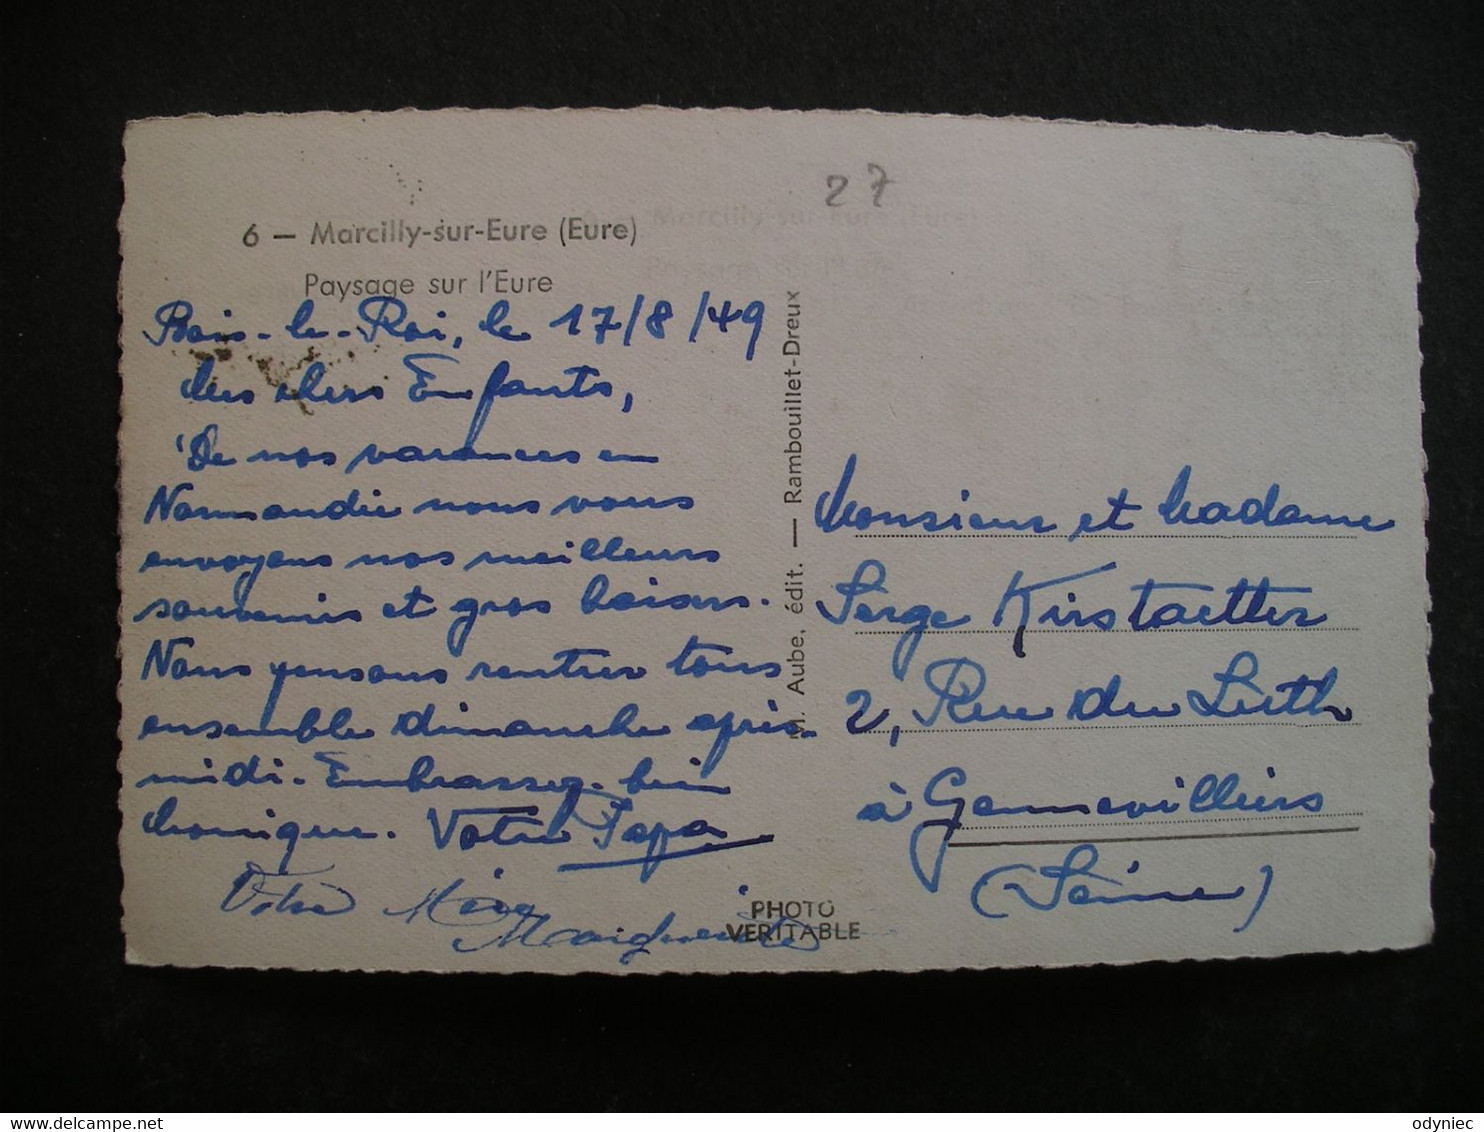 27
6 — Marcilly-sur-Eure (Eure)
Paysage sur l'Eure
Bois-le-Roi, le 17/8/49
Mes chers Enfants,
De nos vacances en
Normandie nous vous
envoyons nos meilleurs
souvenirs et gros baisers.
Nous pensons rentrer tous
ensemble dimanche après-
midi. Embrassez bien
Monique. Votre Papa
Votre Mère
Marguerite
PHOTO
VERITABLE
M. Aube, édit. — Rambouillet-Dreux
Monsieur et Madame
Serge Kirstaetter
2, Rue du Luth
à Gennevilliers
(Seine)
odyniec